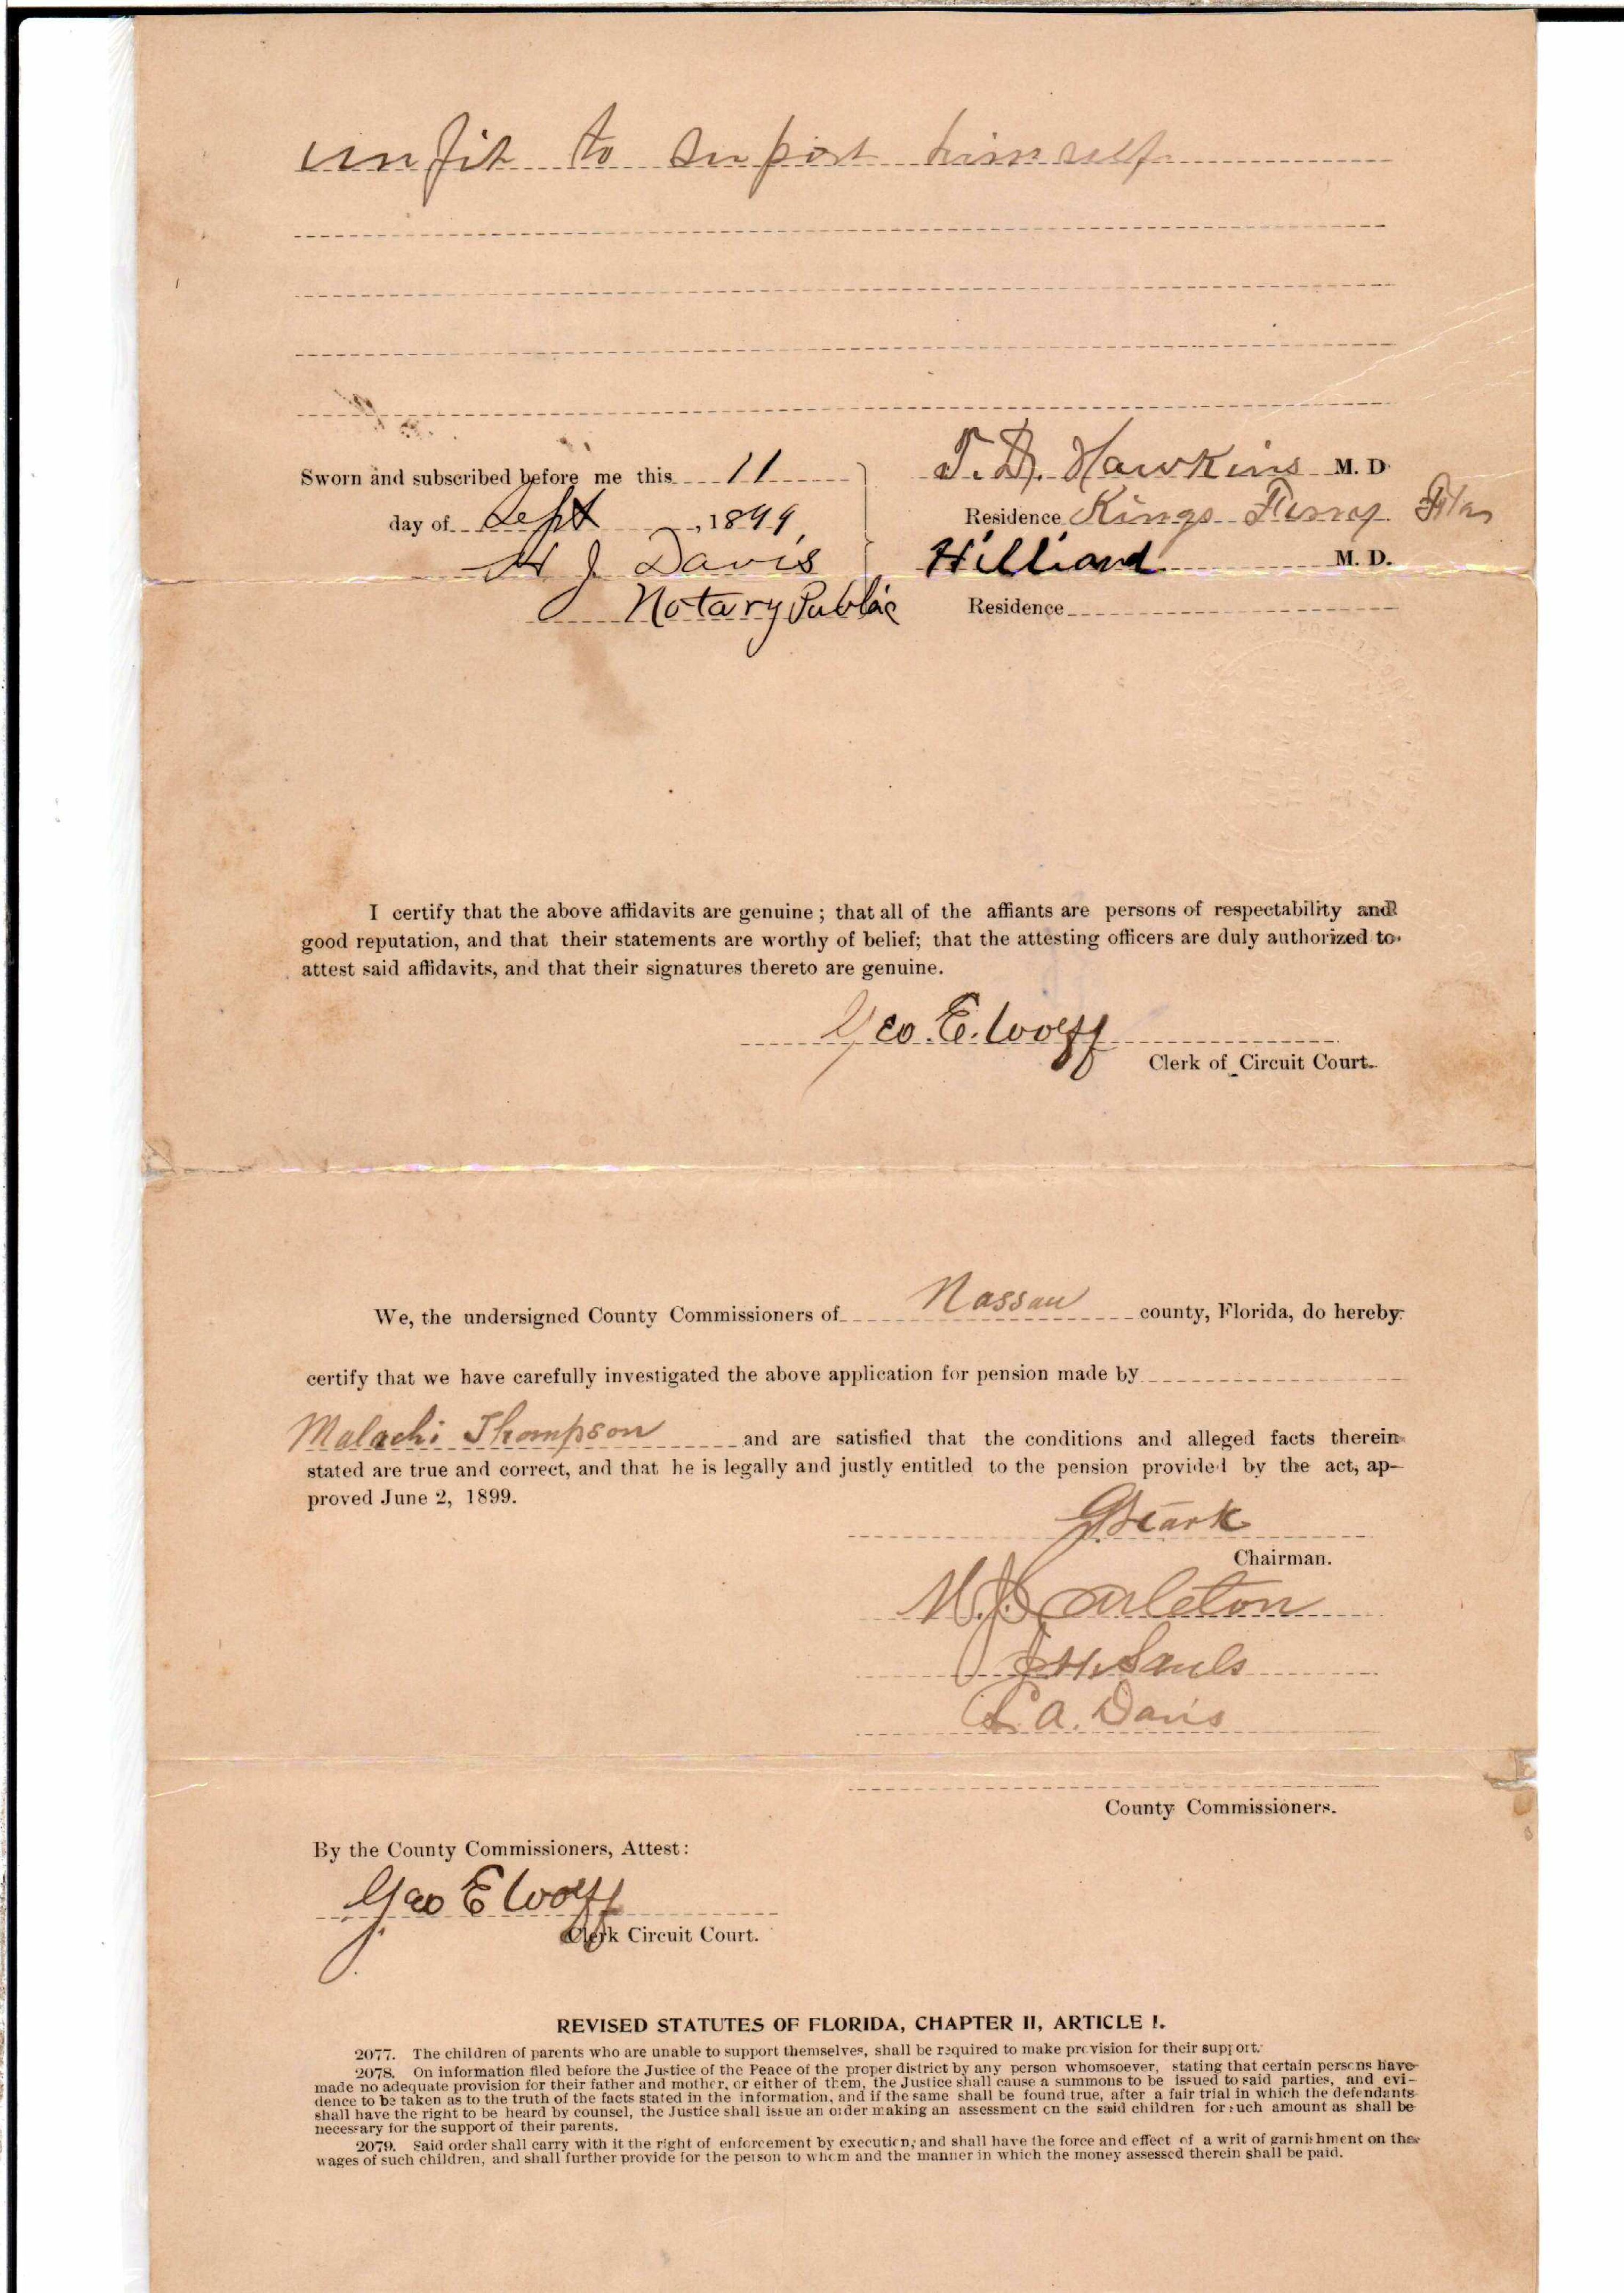 unfit to suport himself
Sworn and subscribed before me this 11
day of Sept, 1899,
H J Davis
Notary Public
T. D. Hawkins M. D.
Residence Kings Ferry Fla
Hilliard M. D.
Residence
I certify that the above affidavits are genuine; that all of the affiants are persons of respectability and
good reputation, and that their statements are worthy of belief; that the attesting officers are duly authorized to
attest said affidavits, and that their signatures thereto are genuine.
Geo. E. Wolff
Clerk of Circuit Court.
We, the undersigned County Commissioners of Nassau county, Florida, do hereby
certify that we have carefully investigated the above application for pension made by
Malachi Thompson and are satisfied that the conditions and alleged facts therein
stated are true and correct, and that he is legally and justly entitled to the pension provided by the act, ap-
proved June 2, 1899.
Stark
Chairman.
Carleton
J H. Sauls
A. Davis
County Commissioners.
By the County Commissioners, Attest:
Geo E Wolff
Clerk Circuit Court.
REVISED STATUTES OF FLORIDA, CHAPTER II, ARTICLE I.
2077. The children of parents who are unable to support themselves, shall be required to make provision for their support.
2078. On information filed before the Justice of the Peace of the proper district by any person whomsoever, stating that certain persons have
made no adequate provision for their father and mother, or either of them, the Justice shall cause a summons to be issued to said parties, and evi-
dence to be taken as to the truth of the facts stated in the information, and if the same shall be found true, after a fair trial in which the defendants
shall have the right to be heard by counsel, the Justice shall issue an order making an assessment on the said children for such amount as shall be
necessary for the support of their parents.
2079. Said order shall carry with it the right of enforcement by execution, and shall have the force and effect of a writ of garnishment on the
wages of such children, and shall further provide for the person to whom and the manner in which the money assessed therein shall be paid.